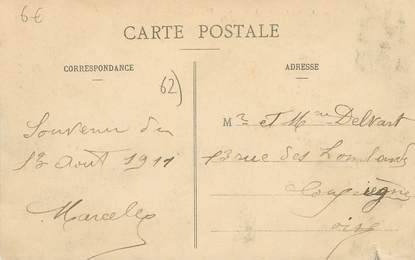 6€
CARTE POSTALE
CORRESPONDANCE
ADRESSE
62)
Souvenir du
13 Août 1911
Marcelle
Mr et Mme Delvart
13 rue des Lombards
Compiègne
Oise